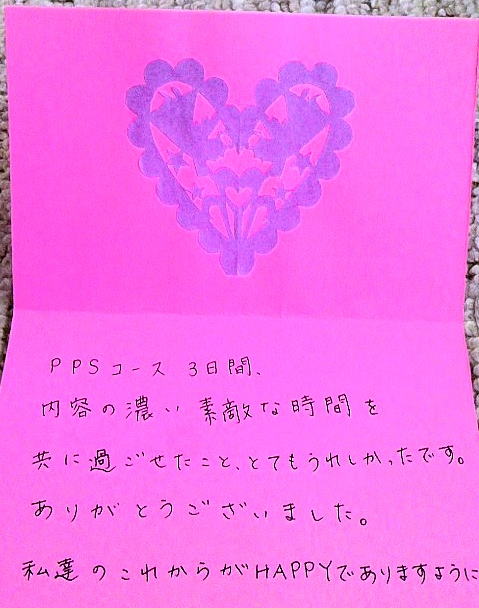 PPSコース 3日間、
内容の濃い素敵な時間を
共に過ごせたこと、とてもうれしかったです。
ありがとうございました。
私達のこれからがHAPPYでありますように